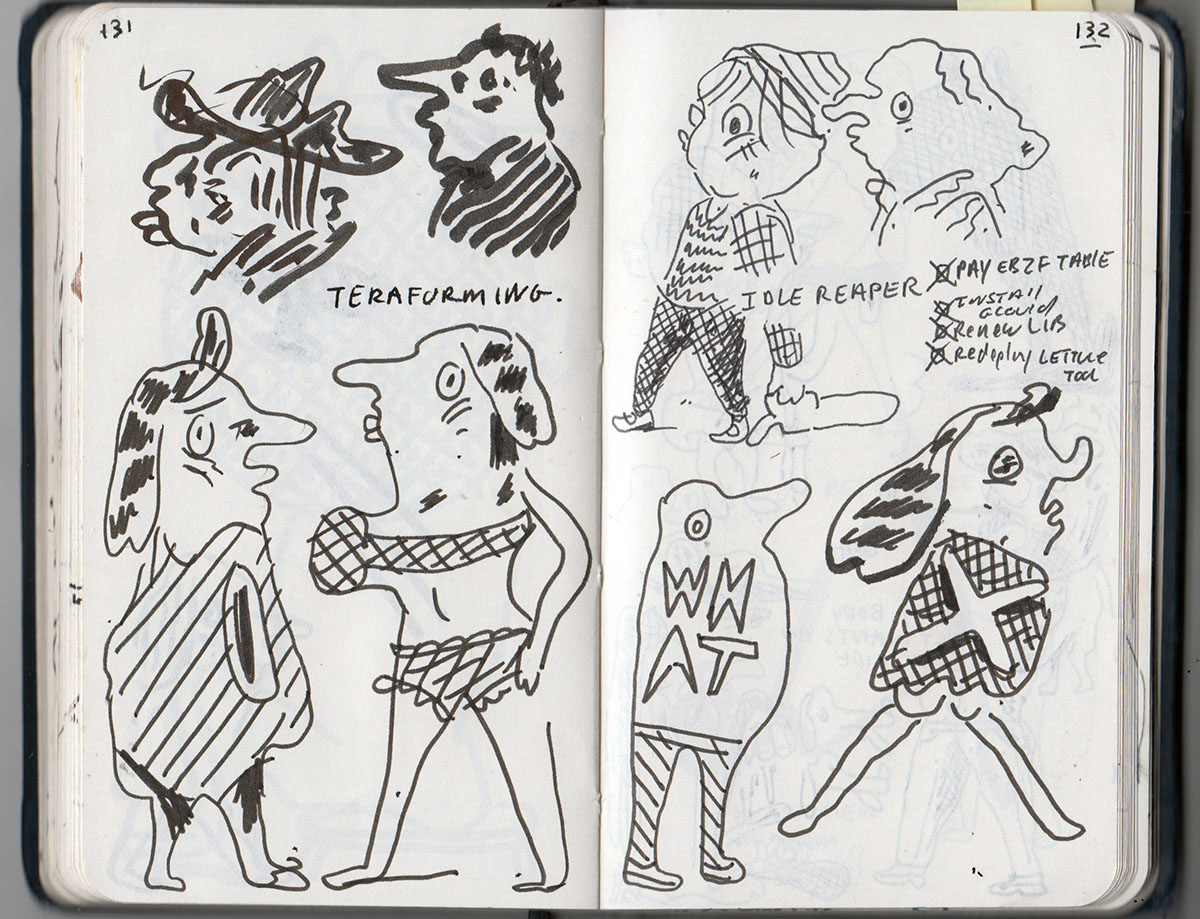 131
TERAFURMING.
132
IDLE REAPER
PAY EBZF TABLE
INSTALL
RENEW LIB
Redeploy LETTUCE
TOOL
WH
AT